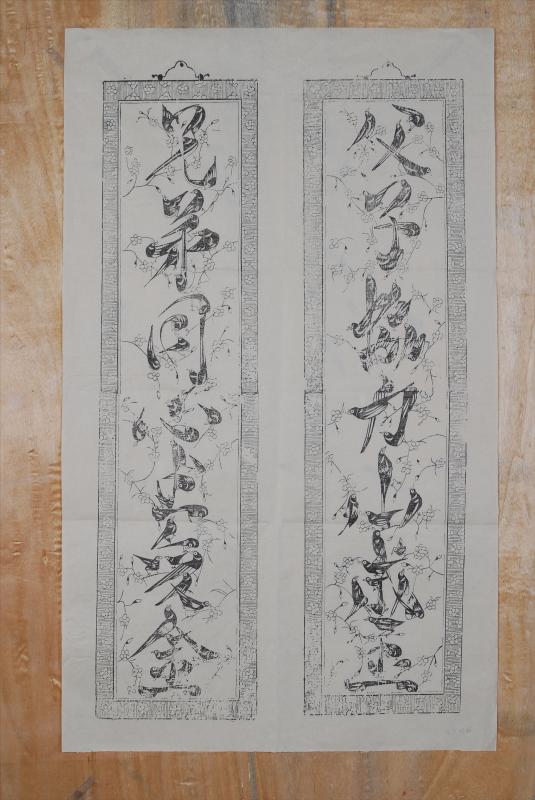 父子協力山成玉
兄弟同心土变金